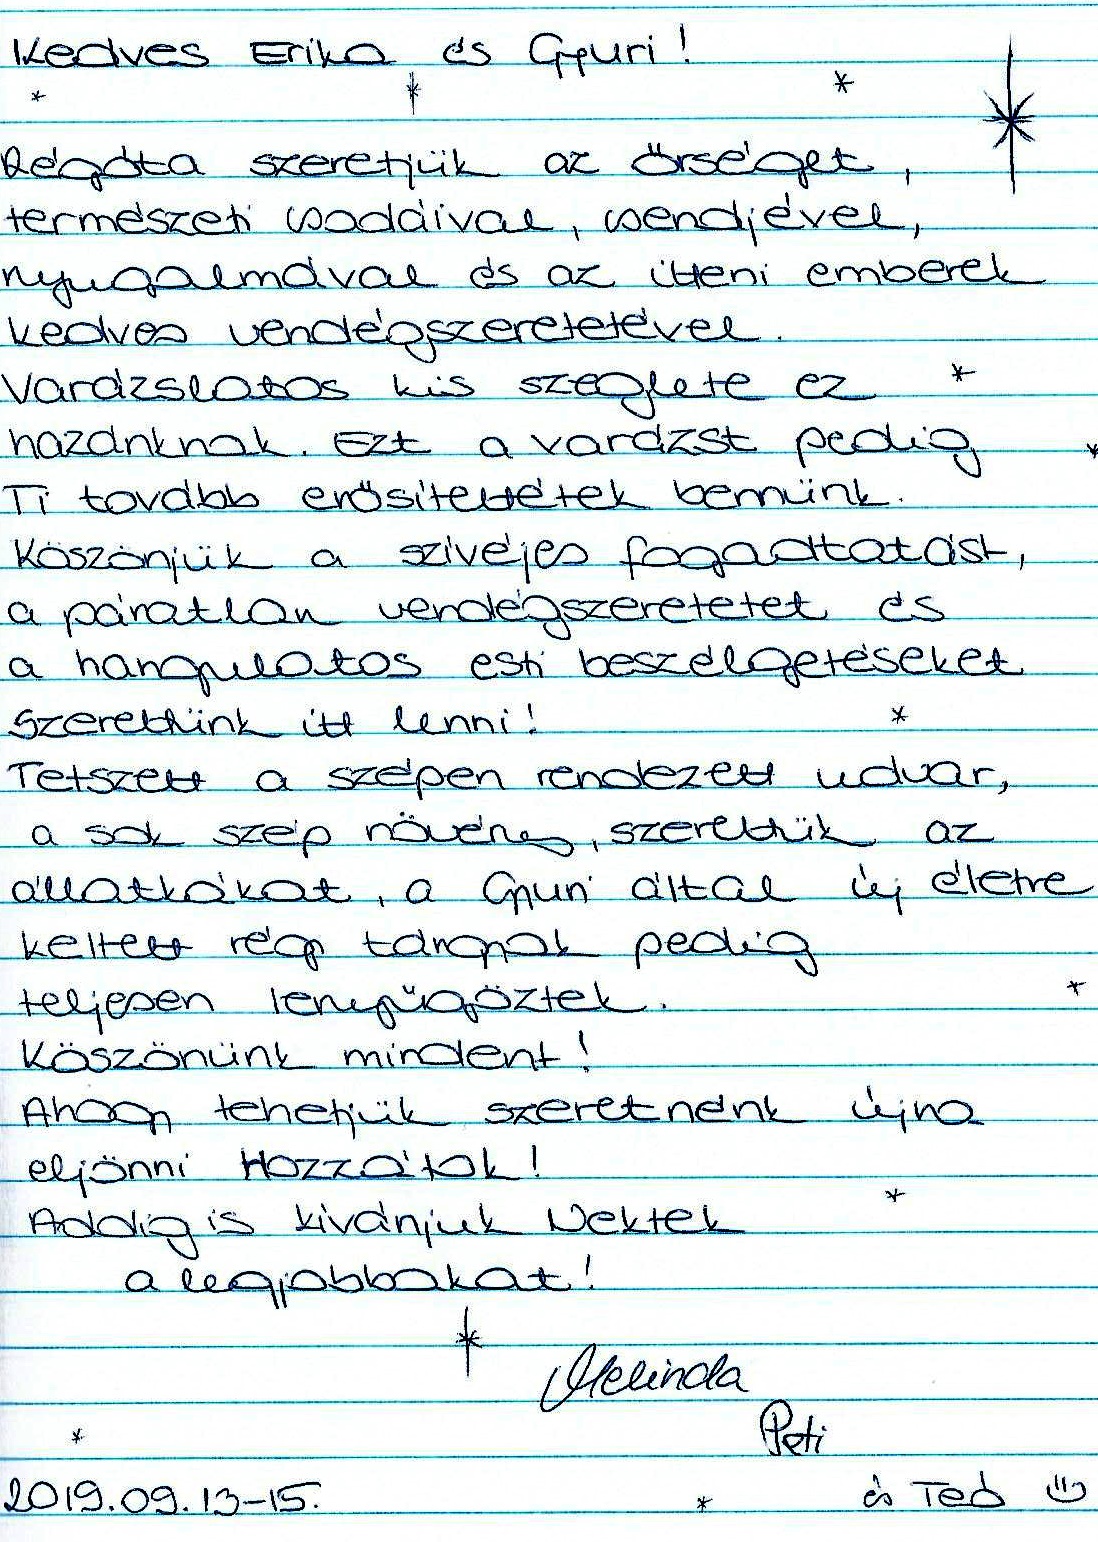 Kedves Erika és Gyuri!
Régóta szeretjük az Őrséget,
természeti csodáival, csendjével,
nyugalmával és az itteni emberek
kedves vendégszeretetével.
Varázslatos kis szeglete ez
hazánknak. Ezt a varázst pedig
Ti tovább erősítettétek bennünk.
Köszönjük a szívéjes fogadtatást,
a páratlan vendégszeretetet és
a hangulatos esti beszélgetéseket
Szerettünk itt lenni!
Tetszett a szépen rendezett udvar,
a sok szép növény, szerettük az
állatkákat, a Gyuri által új életre
keltett régi tárgyak pedig
teljesen lenyűgöztek.
Köszönünk mindent!
Ahogy tehetjük szeretnénk újra
eljönni Hozzátok!
Addig is kívánjuk Nektek
a legjobbakat!
Melinda
Peti
2019.09.13-15. és Teó